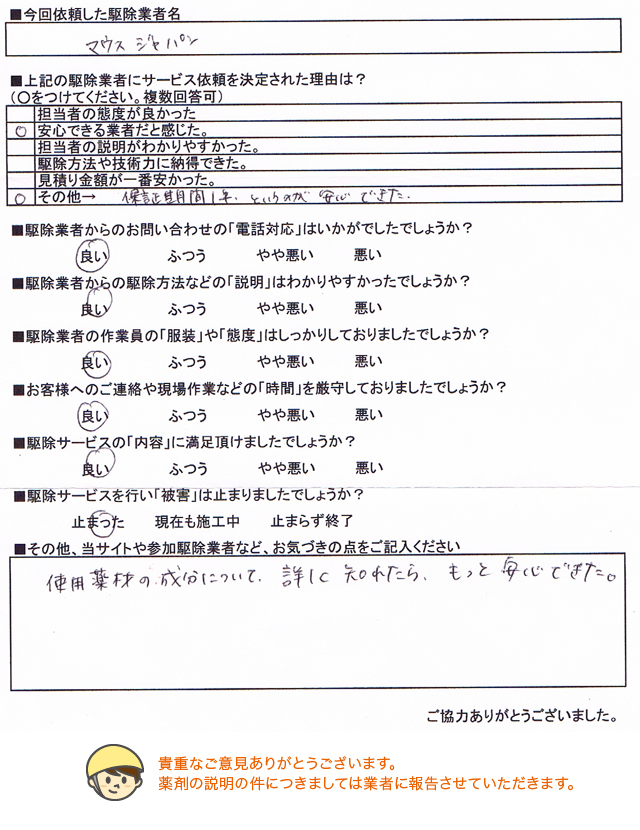 ■今回依頼した駆除業者名
マウスジャパン
■上記の駆除業者にサービス依頼を決定された理由は？
(〇をつけてください。複数回答可)
担当者の態度が良かった
○ 安心できる業者だと感じた。
担当者の説明がわかりやすかった。
駆除方法や技術力に納得できた。
見積り金額が一番安かった。
○ その他→ 保証期間1年、というのが安心できた。
■駆除業者からのお問い合わせの「電話対応」はいかがでしたでしょうか？
良い ふつう やや悪い 悪い
■駆除業者からの駆除方法などの「説明」はわかりやすかったでしょうか？
良い ふつう やや悪い 悪い
■駆除業者の作業員の「服装」や「態度」はしっかりしておりましたでしょうか？
良い ふつう やや悪い 悪い
■お客様へのご連絡や現場作業などの「時間」を厳守しておりましたでしょうか？
良い ふつう やや悪い 悪い
■駆除サービスの「内容」に満足頂けましたでしょうか？
良い ふつう やや悪い 悪い
■駆除サービスを行い「被害」は止まりましたでしょうか？
止まった 現在も施工中 止まらず終了
■その他、当サイトや参加駆除業者など、お気づきの点をご記入ください
使用薬材の成分について、詳しく知れたら、もっと安心できた。
ご協力ありがとうございました。
貴重なご意見ありがとうございます。
薬剤の説明の件につきましては業者に報告させていただきます。